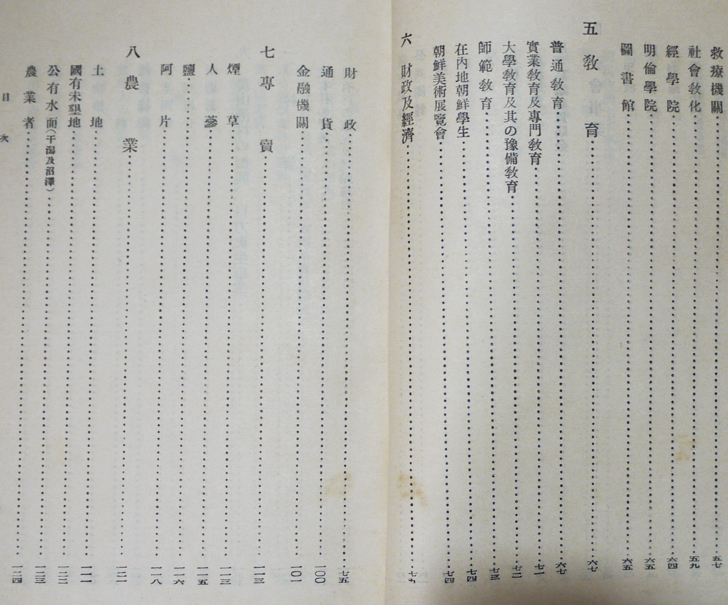 救療機關……五七
社會教化……五九
經學院……六四
明倫學院……六五
圖書館……六五
五 教育……六七
普通教育……六七
實業教育及專門教育……七一
大學教育及其の豫備教育……七二
師範教育……七三
在內地朝鮮學生……七四
朝鮮美術展覽會……七四
六 財政及經濟……七五
財政……七五
通貨……一〇〇
金融機關……一〇一
七 專賣……一一三
煙草……一一三
人蔘……一一五
鹽……一一六
阿片……一一八
八 農業……一二一
土地……一二一
國有未墾地……一二二
公有水面(干潟及沼澤)……一二三
農業者……一二四
目次